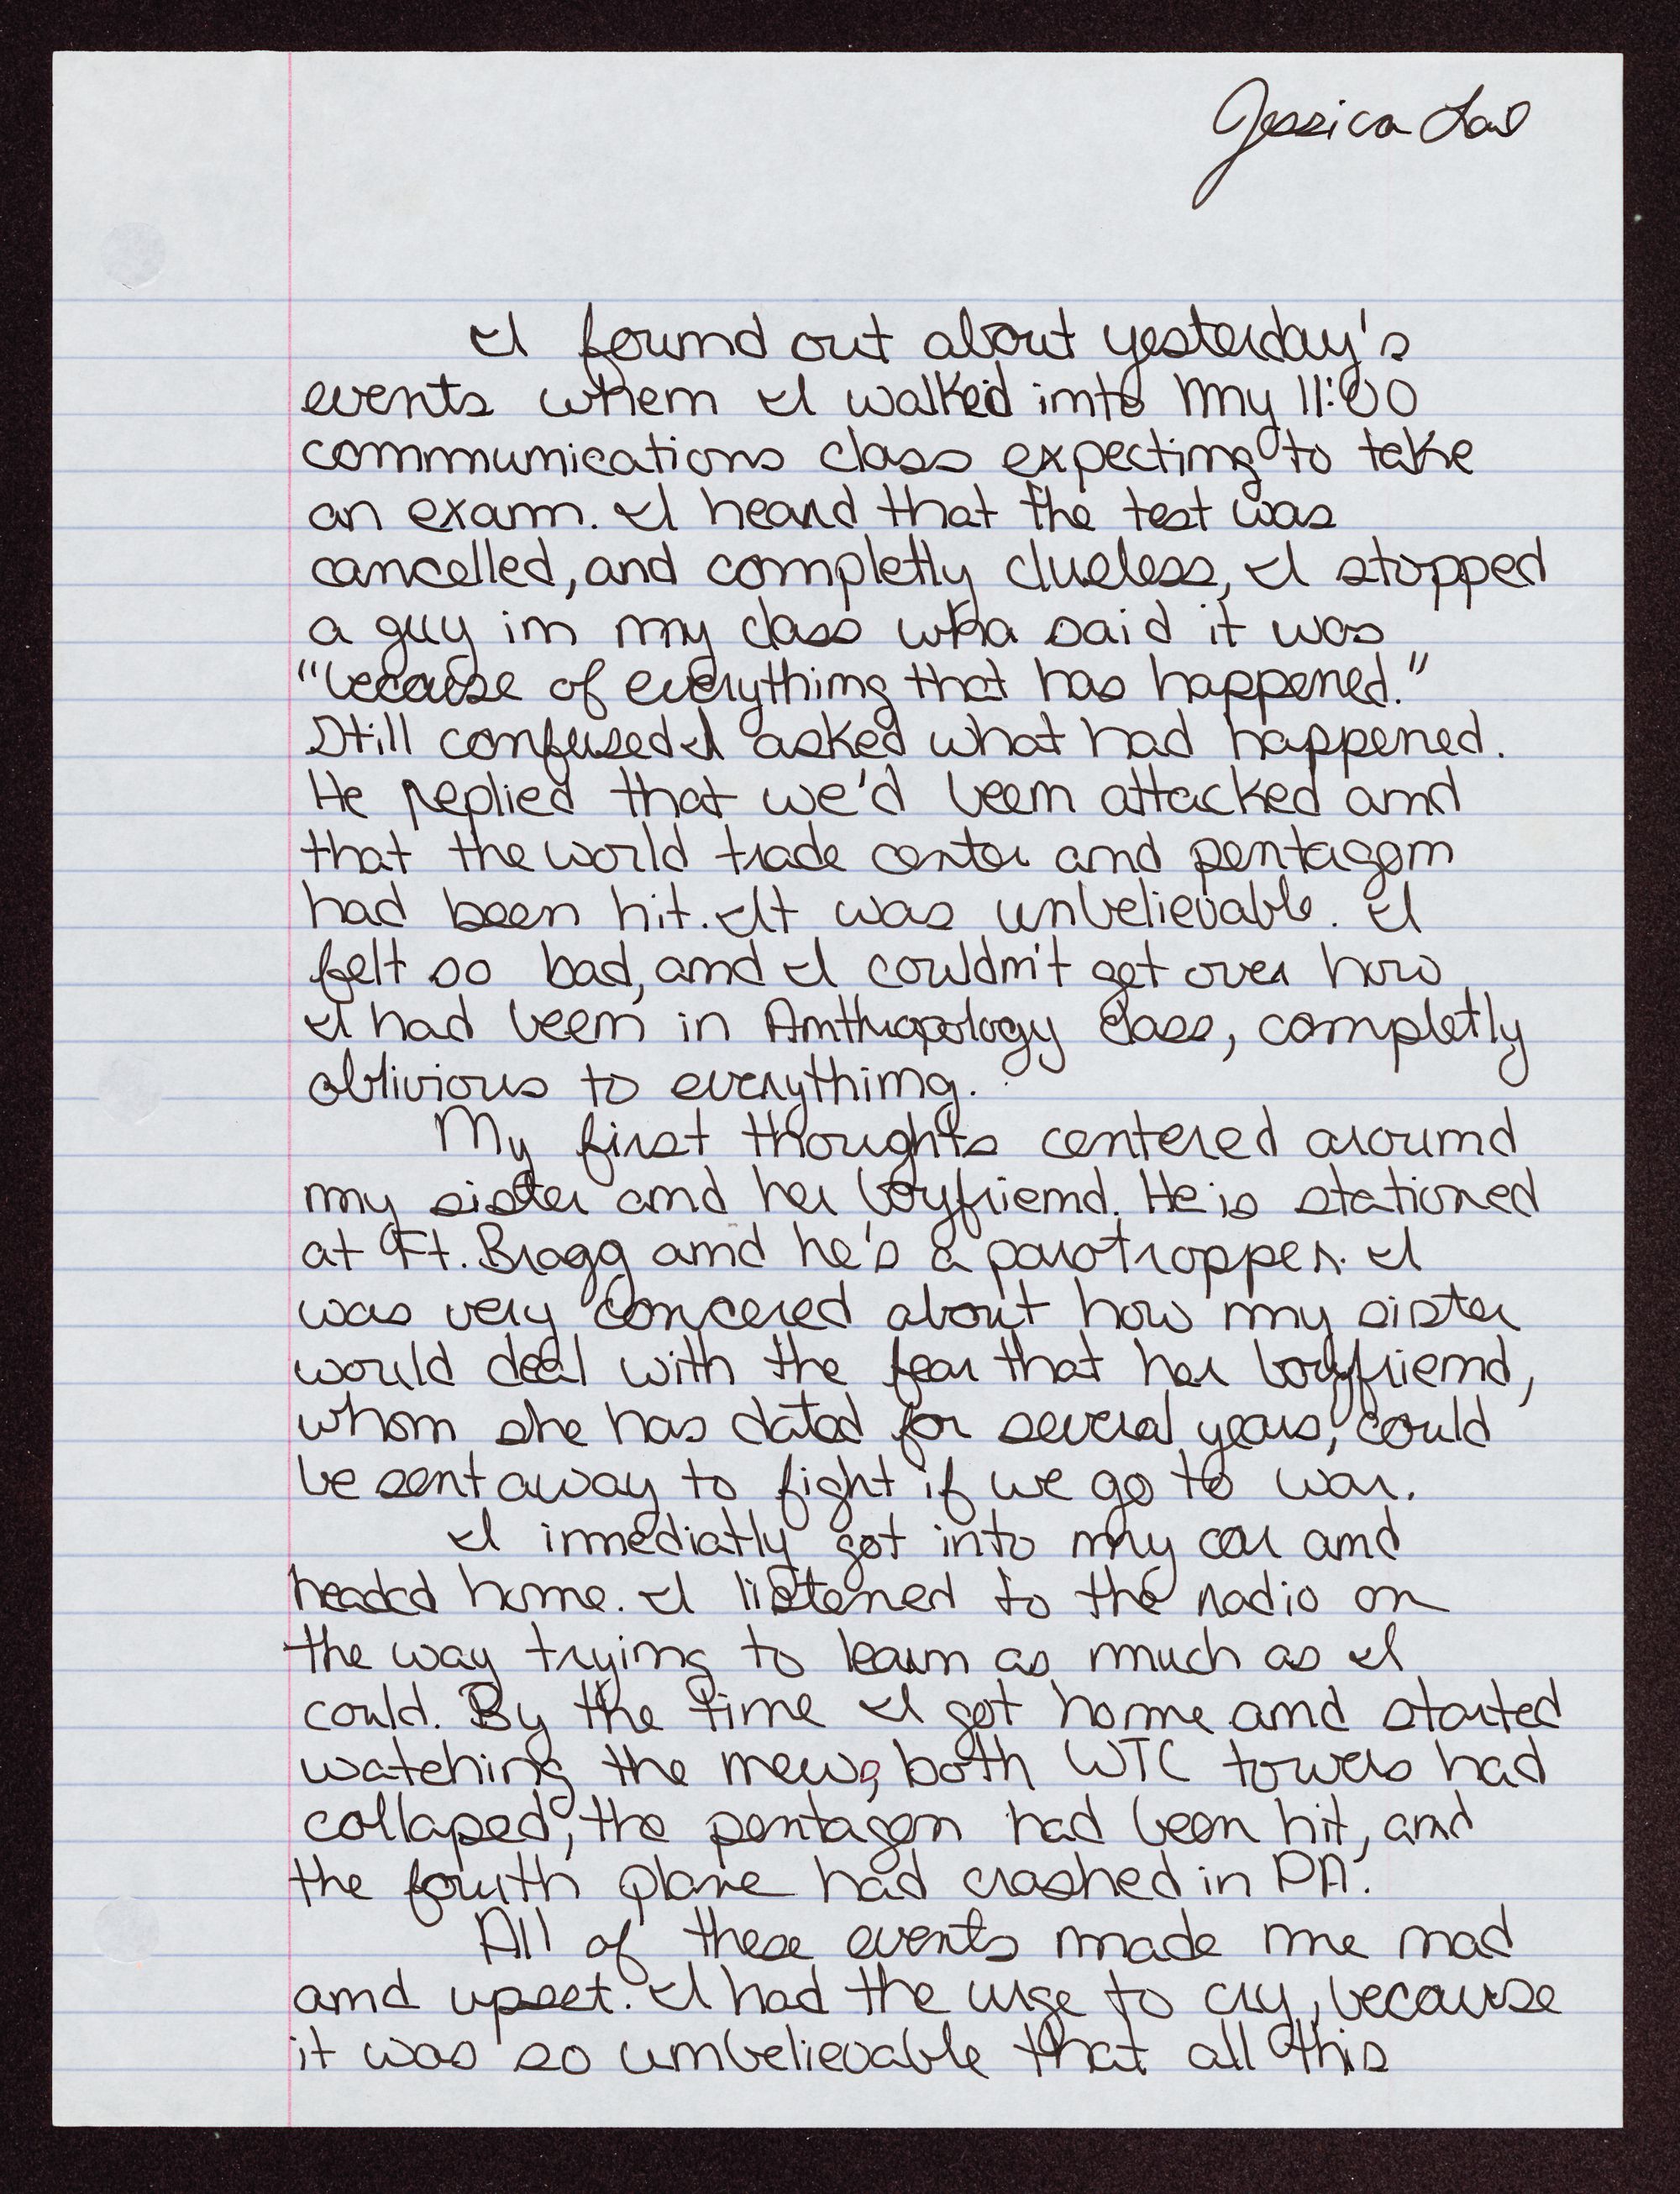 Jessica
I found out about yesterday's
events when I walked into my 11:00
communications class expecting to take
an exam. I heard that the test was
cancelled, and completly clueless, I stopped
a guy in my class who said it was
"because of everything that has happened."
Still confused I asked what had happened.
He replied that we'd been attacked and
that the world trade center and pentagon
had been hit. It was unbelievable. I
felt so bad, and I couldn't get over how
I had been in Anthropology class, completly
oblivious to everything.
My first thoughts centered around
my sister and her boyfriend. He is stationed
at Ft. Bragg and he's a paratropper. I
was very concered about how my sister
would deal with the fear that her boyfriend,
whom she has dated for several years, could
be sent away to fight if we go to war.
I immediatly got into my car and
headed home. I listened to the radio on
the way trying to learn as much as I
could. By the time I got home and started
watching the news, both WTC towers had
collaped, the pentagon had been hit, and
the fourth plane had crashed in PA.
All of these events made me mad
and upset. I had the urge to cry, because
it was so unbelievable that all this